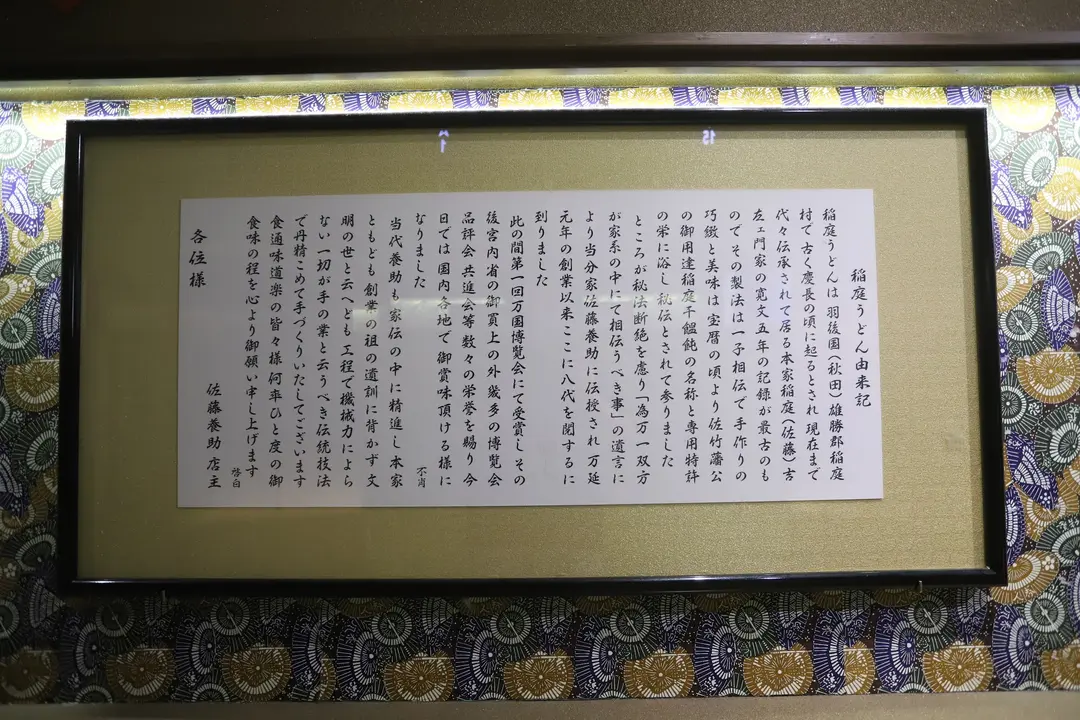 稲庭うどん由来記
稲庭うどんは羽後国(秋田)雄勝郡稲庭
村で古く慶長の頃に起るとされ現在まで
代々伝承されて居る本家稲庭(佐藤)吉
左ェ門家の寛文五年の記録が最古のも
のでその製法は一子相伝で手作りの
巧緻と美味は宝暦の頃より佐竹藩公
の御用達稲庭干饂飩の名称と専用特許
の栄に浴し秘伝とされて参りました
ところが秘法断絶を慮り「為万一双方
が家系の中にて相伝うべき事」の遺言に
より当分家佐藤養助に伝授され万延
元年の創業以来ここに八代を閲するに
到りました
此の間第一回万国博覧会にて受賞しその
後宮内省の御買上の外幾多の博覧会
品評会共進会等数々の栄誉を賜り今
日では国内各地で御賞味頂ける様に
なりました
不肖
当代養助も家伝の中に精進し本家
ともども創業の祖の遺訓に背かず文
明の世と云へども工程で機械力によら
ない一切が手の業と云うべき伝統技法
で丹精こめて手づくりいたしてございます
食通味道楽の皆々様何卒ひと度の御
食味の程を心より御願い申し上げます
啓白
佐藤養助店主
各位様